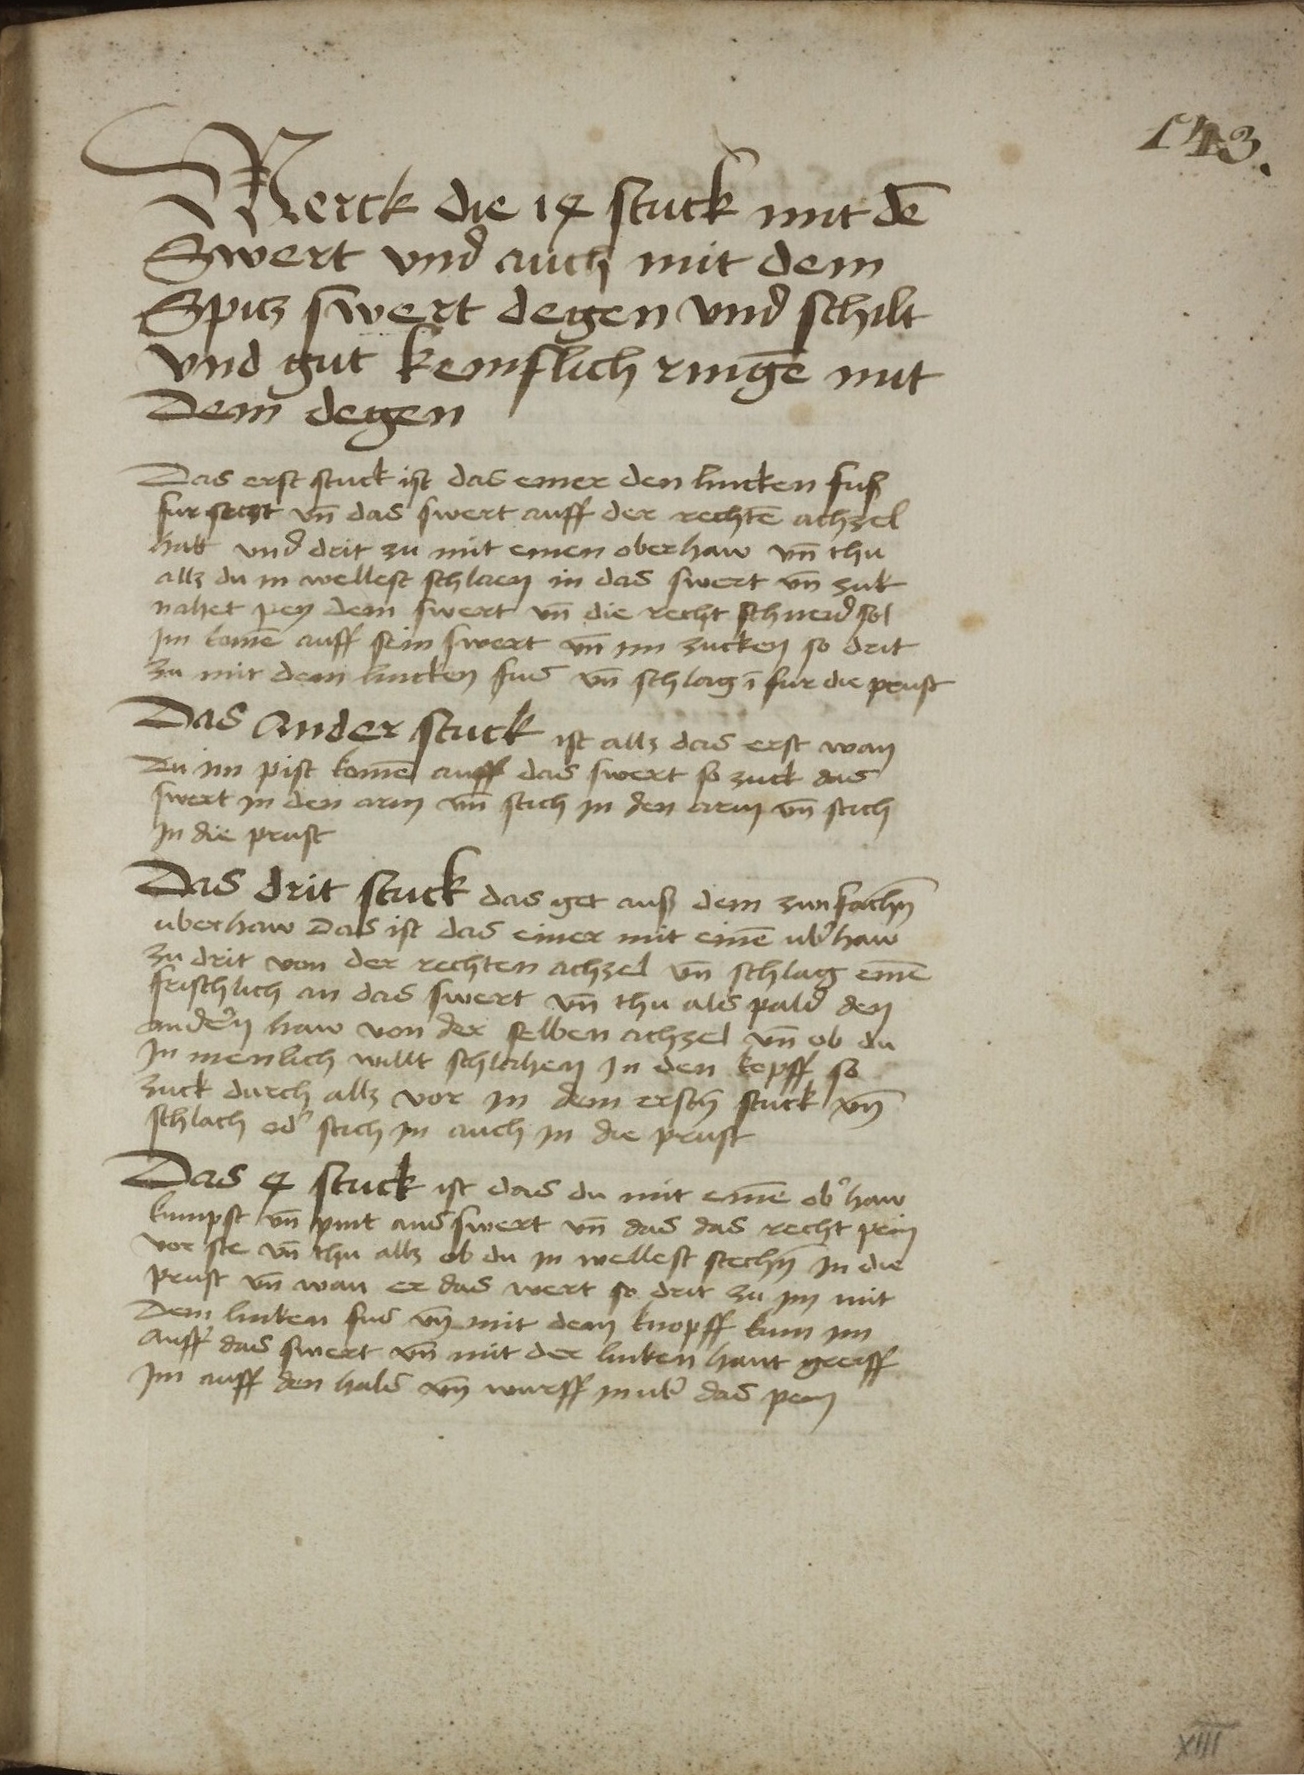 143.
Merck die 14 stuck mit dē
Swert vnd auch mit dem
Spitz swert degen vnd schilt
vnd gut kempflich ringē mit
Dem degen
Das erst stuck ist das einer den lincken fuß
fur setzt vn̄ das swert auff der rechtē achzel
hat vnd drit zu mit einen oberhaw vn̄ thu
allz du in wellest schlaen in das swert vn̄ zuk
nahet pey dem swert vn̄ die recht schneid sol
Im komē auff sein swert vn̄ im zucken so drit
zu mit dem lincken fus vn̄ schlag ī fur die prust
Das ander stuck ist allz das erst wan
Du im pist komē auff das swert so zuck das
swert in den arm vn̄ stich in den arm vn̄ stich
In die prust
Das drit stuck das get auß dem zwifachn̄
uberhaw Das ist das einer mit einē ub̓haw
zu drit von der rechten achzel vn̄ schlag einē
frischlich an das swert vn̄ thu als pald den
andern haw von der selben achzel vn̄ ob du
In menlich willt schlahen In den kopff so
zuck durch allz vor in dem erstn̄ stuck vn̄
schlach od̓ stich in auch in die prust
Das 4 stuck ist das du mit einē ob̓haw
kumpst vn̄ pint ans swert vn̄ das das recht pein
vor ste vn̄ thu allz ob du in wellest stechn̄ In die
prust vn̄ wan er das wert so drit zu im mit
Dem linken fus vn̄ mit dem knopff kum im
Auff das swert vn̄ mit der linken hant greiff
Im auff den hals vn̄ wurff in ub̓ das pein
XIII